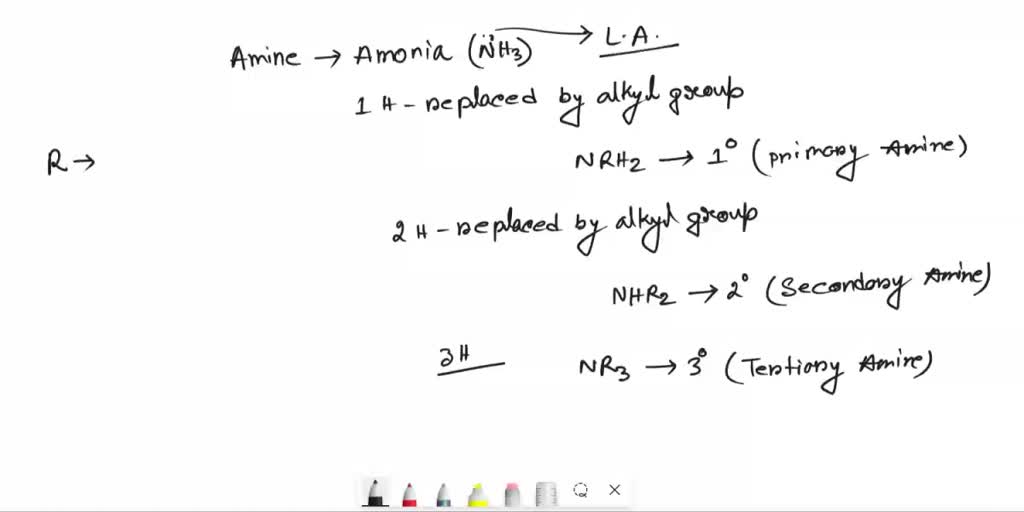 Amine → Amonia (N̈H3) → L.A.
1 H - replaced by alkyl group
R →
NRH2 → 1° (primary Amine)
2 H - replaced by alkyl group
NHR2 → 2° (Secondary Amine)
3H
NR3 → 3° (Tertiary Amine)